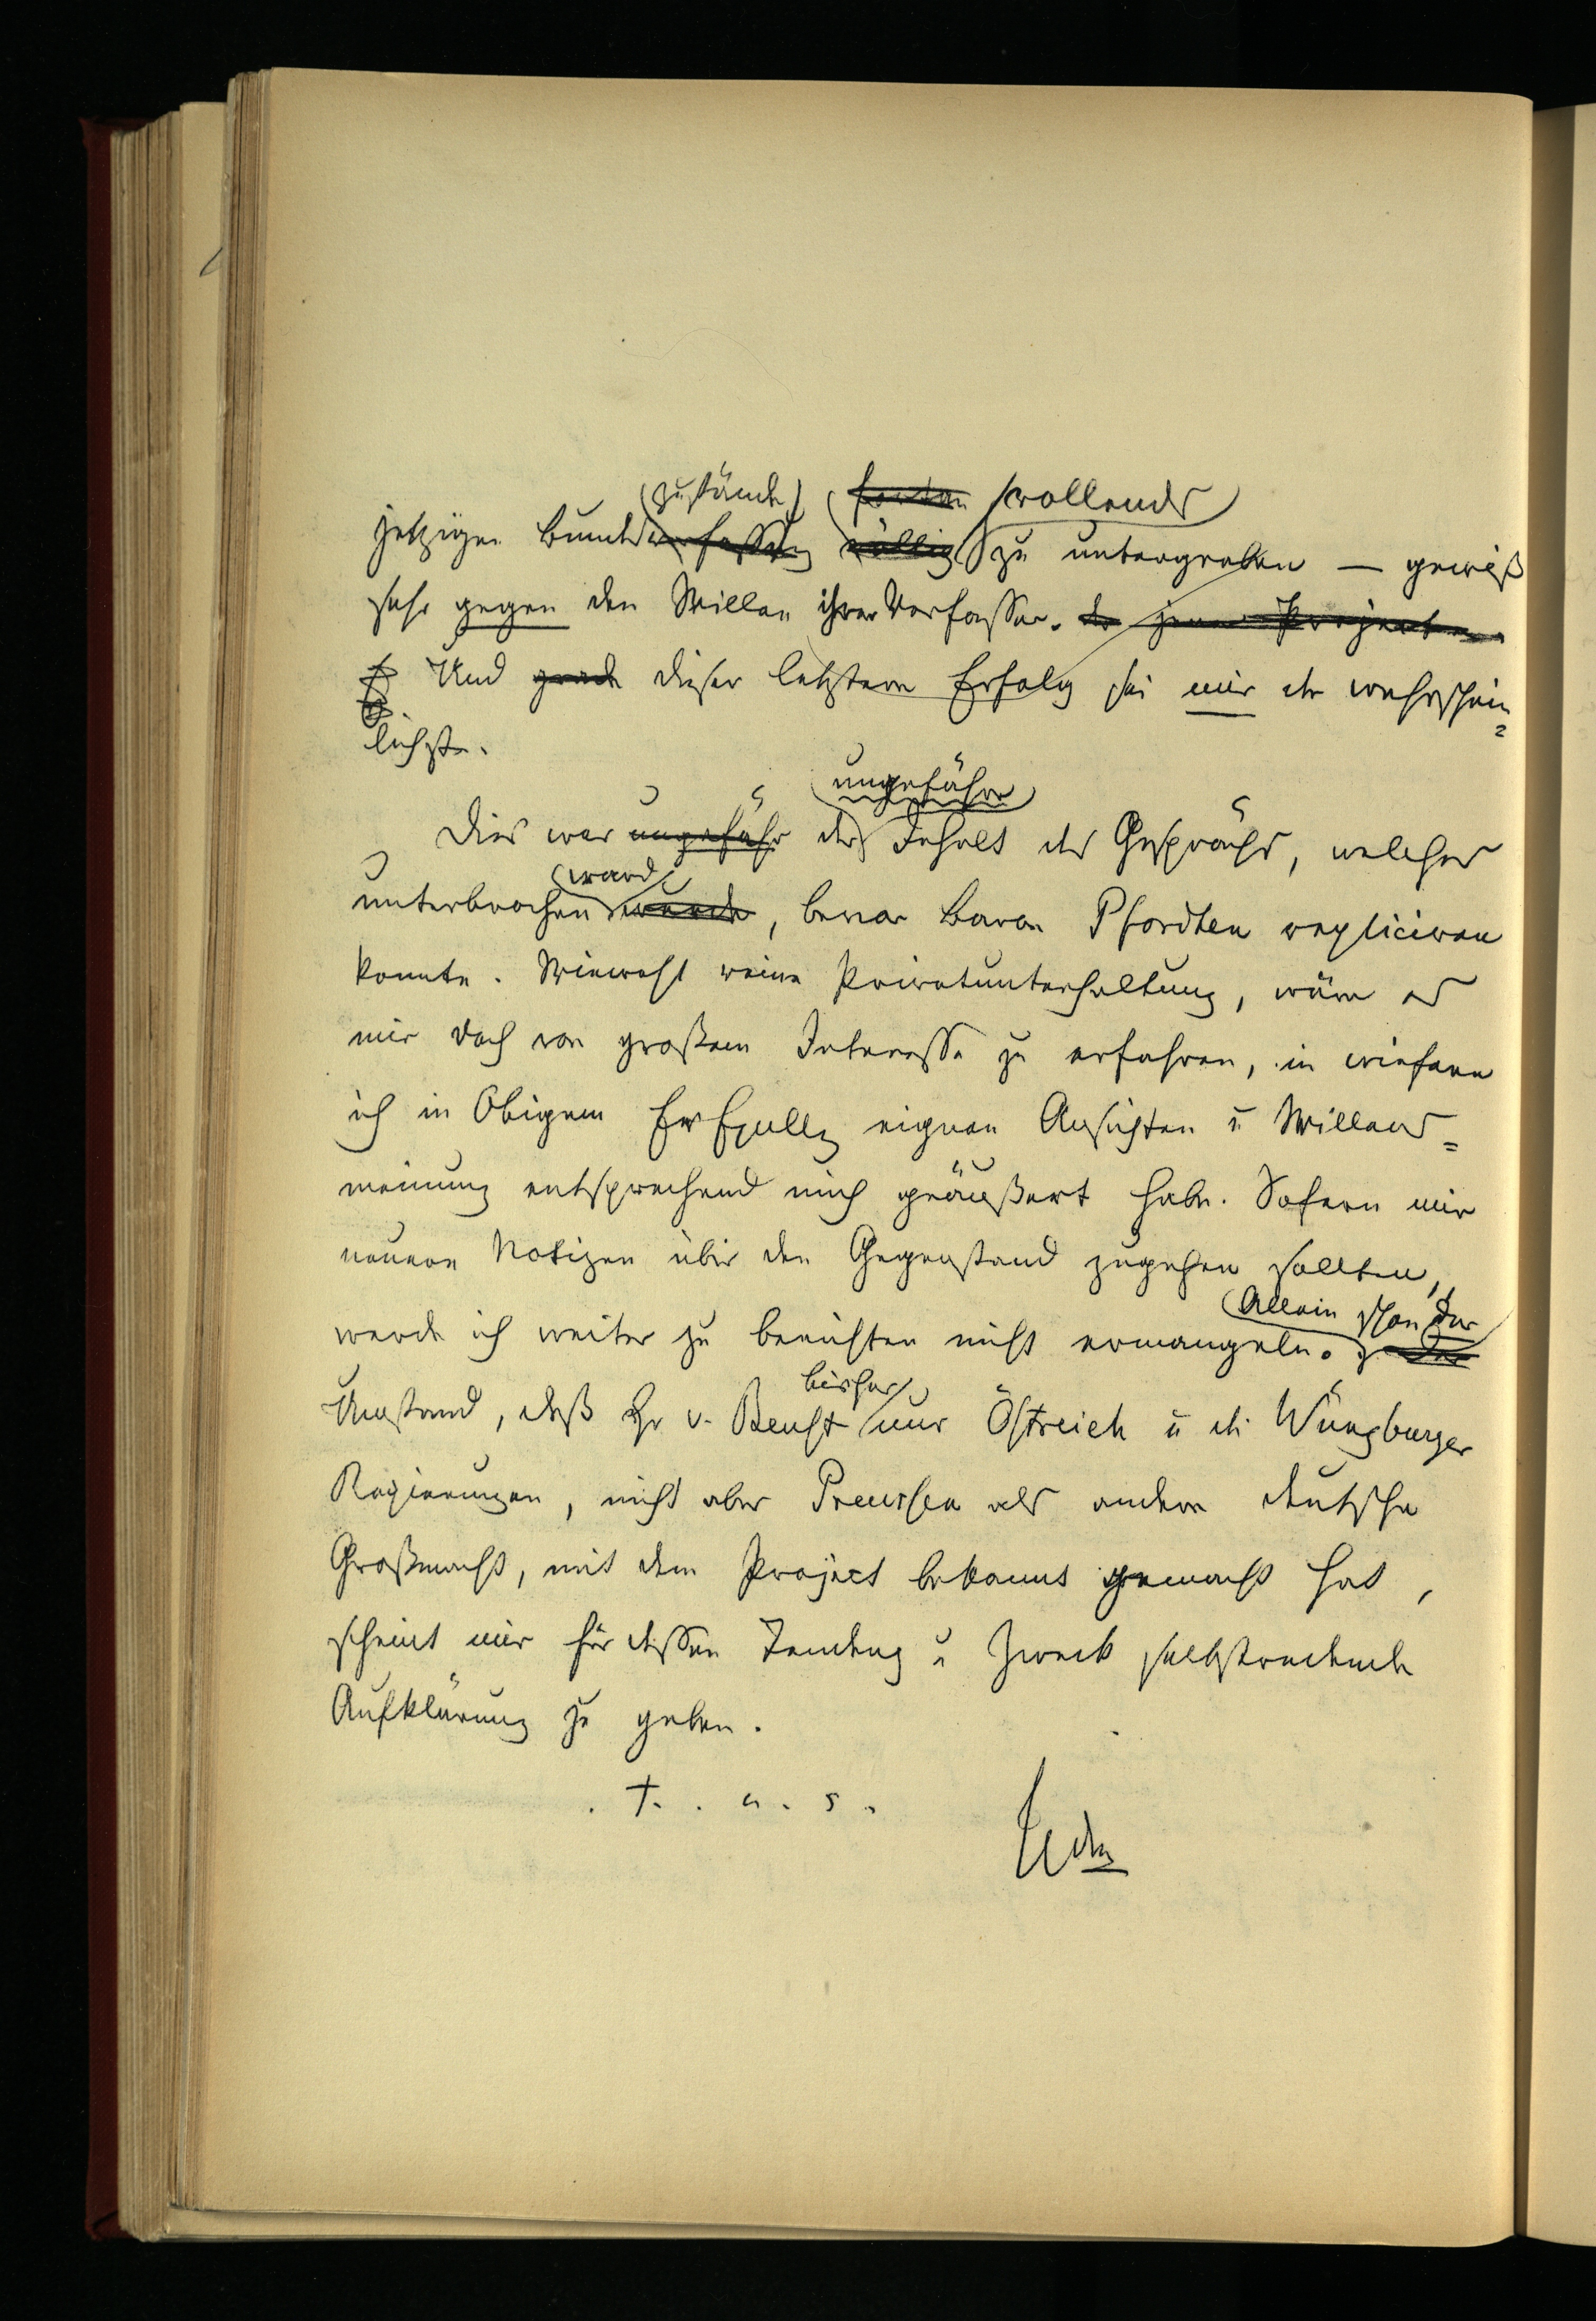 zustände fortan vollends
jetzigen Bundesverfassung völlig zu untergraben — gewiß
sehr gegen den Willen ihrer Verfasser. der jener Projecte
Und grade dieser letztere Erfolg sei mir der wahrschein=
lichste.
ungefähre
Dies war ungefähr der Inhalt des Gesprächs, welches
ward
unterbrochen wurde, bevor Baron Pfordten repliciren
konnte. Wiewohl reine Privatunterhaltung, wäre es
mir doch von großem Interesse zu erfahren, in wiefern
ich in Obigem Ew Exzellz eignen Ansichten u Willens=
meinung entsprechend mich geäußert habe. Sofern mir
neuere Notizen über den Gegenstand zugehen sollten,
Allein schon der
werde ich weiter zu berichten nicht ermangeln. der
bisher
Umstand, daß Hr v. Beust nur Östreich u die Würzburger
Regierungen, nicht aber Preussen als andere deutsche
Großmacht, mit dem Project bekannt gemacht hat,
scheint mir für dessen Tendenz u Zweck selbstredende
Aufklärung zu geben.
. T. . u. s.